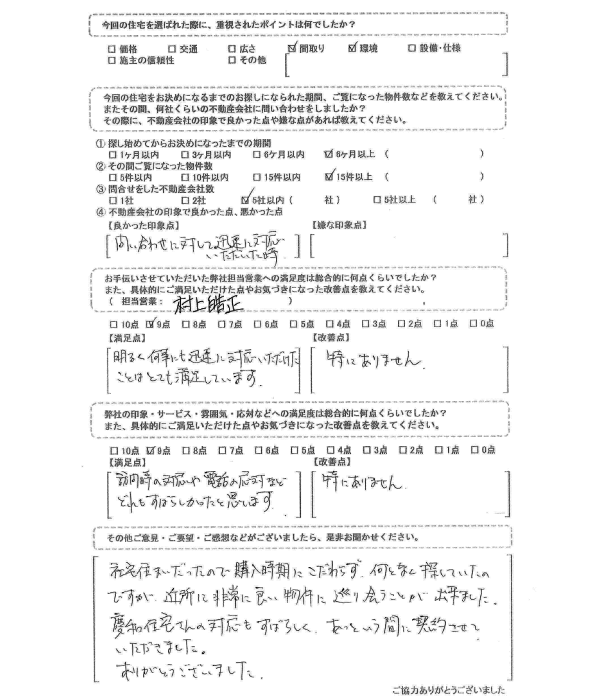 今回の住宅を選ばれた際に、重視されたポイントは何でしたか？
□ 価格 □ 交通 □ 広さ ☑ 間取り ☑ 環境 □ 設備・仕様
□ 施主の信頼性 □ その他
今回の住宅をお決めになるまでのお探しになられた期間、ご覧になった物件数などを教えてください。
またその間、何社くらいの不動産会社に問い合わせをしましたか？
その際に、不動産会社の印象で良かった点や嫌な点があれば教えてください。
① 探し始めてからお決めになったまでの期間
□ 1ヶ月以内 □ 3ヶ月以内 □ 6ケ月以内 ☑ 6ヶ月以上 ( )
② その間ご覧になった物件数
□ 5件以内 □ 10件以内 □ 15件以内 ☑ 15件以上 ( )
③ 問合せをした不動産会社数
□ 1社 □ 2社 ☑ 5社以内 ( 社 ) □ 5社以上 ( 社 )
④ 不動産会社の印象で良かった点、悪かった点
【良かった印象点】 【嫌な印象点】
問い合わせに対して迅速に対応
いただいた時
お手伝いさせていただいた弊社担当営業への満足度は総合的に何点くらいでしたか？
また、具体的にご満足いただけた点やお気づきになった改善点を教えてください。
( 担当営業： 村上皓正 )
□ 10点 ☑ 9点 □ 8点 □ 7点 □ 6点 □ 5点 □ 4点 □ 3点 □ 2点 □ 1点 □ 0点
【満足点】 【改善点】
明るく何事にも迅速に対応いただけた
ことはとても満足しています。
特にありません。
弊社の印象・サービス・雰囲気・応対などへの満足度は総合的に何点くらいでしたか？
また、具体的にご満足いただけた点やお気づきになった改善点を教えてください。
□ 10点 ☑ 9点 □ 8点 □ 7点 □ 6点 □ 5点 □ 4点 □ 3点 □ 2点 □ 1点 □ 0点
【満足点】 【改善点】
訪問時の対応や電話の応対など
どれもすばらしかったと思います
特にありません
その他ご意見・ご要望・ご感想などがございましたら、是非お聞かせください。
社宅住まいだったので購入時期にこだわらず、何となく探していたの
ですが、近所に非常に良い物件に巡り会うことが出来ました。
慶和住宅さんの対応もすばらしく、あっという間に契約させて
いただきました。
ありがとうございました。
ご協力ありがとうございました